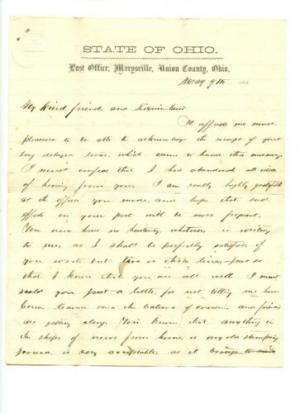 STATE OF OHIO.
Post Office, Marysville, Union County, Ohio,
May 9th
My Kind friend and
It affords me more
pleasure to be able to acknowledge the receipt of your
long delayed letter, which came to hand this morning.
I must confess that I had abandoned all idea
of hearing from you. I am really highly gratified
at the offer you make, and hope that such
efforts on your part will be more frequent.
You need have no hesitancy whatever in writing
to me, as I shall be perfectly satisfied if
you write but two or three lines just so
that I know that you are all well. I must
scold you just a little for not telling me how
the balance of and friends
are getting along. You know that anything in
the shape of news from home or my old stamping
ground, is very acceptable, as it brings to mind